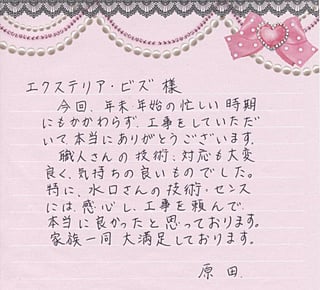 エクステリア・ビズ 様
今回、年末、年始の忙しい時期
にもかかわらず、工事をしていただ
いて、本当にありがとうございます。
職人さんの技術、対応も大変
良く、気持ちの良いものでした。
特に、水口さんの技術・センス
には、感心し、工事を頼んで、
本当に良かったと思っております。
家族一同 大満足しております。
原田.